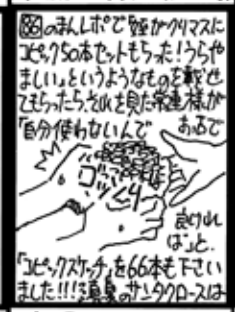 86のまんレポで「姪がクリスマスに
コピック50本セットもらった！うらや
ましい」というようなものを載せ
てもらったら、それを見た常連様が
「自分使わないんで
あるで
ゴッソリ
良ければ」と、
「コピックスケッチ」を66本も下さい
ました!!!真夏のサンタクロースは